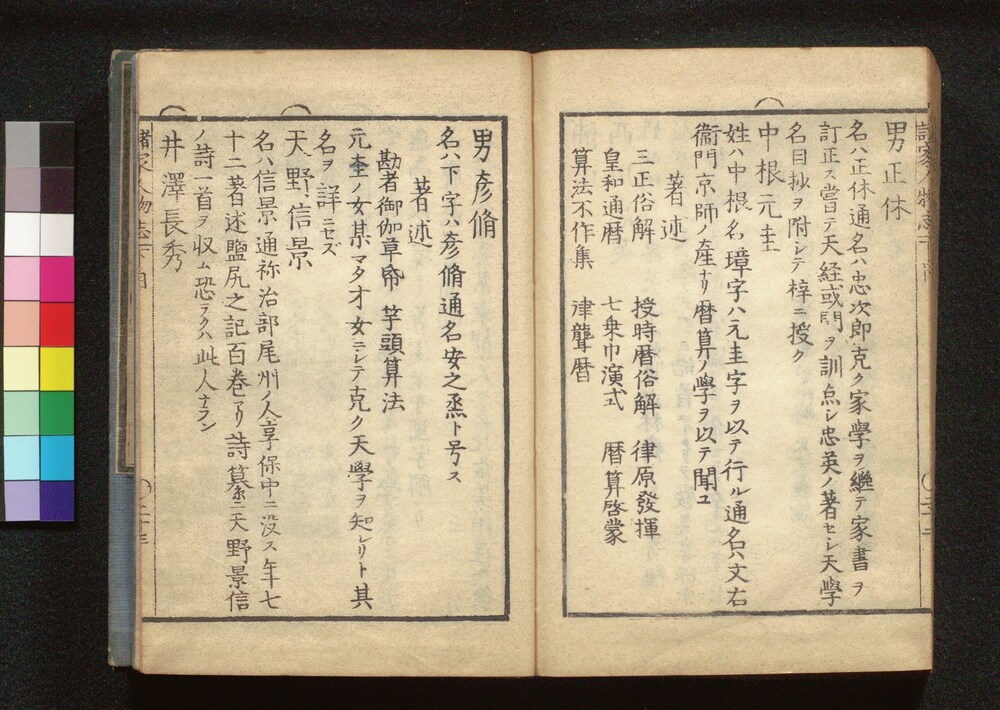 男正休
名ハ正休通名ハ忠次郎克ク家學ヲ繼テ家書ヲ
訂正ス嘗テ天経或問ヲ訓点シ忠英ノ著セシ天學
名目抄ヲ附シテ梓ニ授ク
中根元圭
姓ハ中根名璋字ハ元圭字ヲ以テ行ル通名ハ文右
衞門京師ノ産ナリ暦算ノ學ヲ以テ聞ユ
著述
三正俗解 授時暦俗解 律原發揮
皇和通暦 七乗巾演式 暦算啓蒙
算法不作集 津聾暦
男彦脩
名ハ下字ハ彦脩通名安之烝ト号ス
著述
勘者御伽草帋 竿頭算法
元圭ノ女某マタオ女ニシテ克ク天學ヲ知レリト其
名ヲ詳ニセズ
天野信景
名ハ信景通祢治部尾州ノ人享保中ニ没ス年七
十二著述鹽尻之記百巻アリ詩纂ニ天野景信
ノ詩一首ヲ収ム恐ラクハ此人ナラン
井澤長秀
諸家人物志下